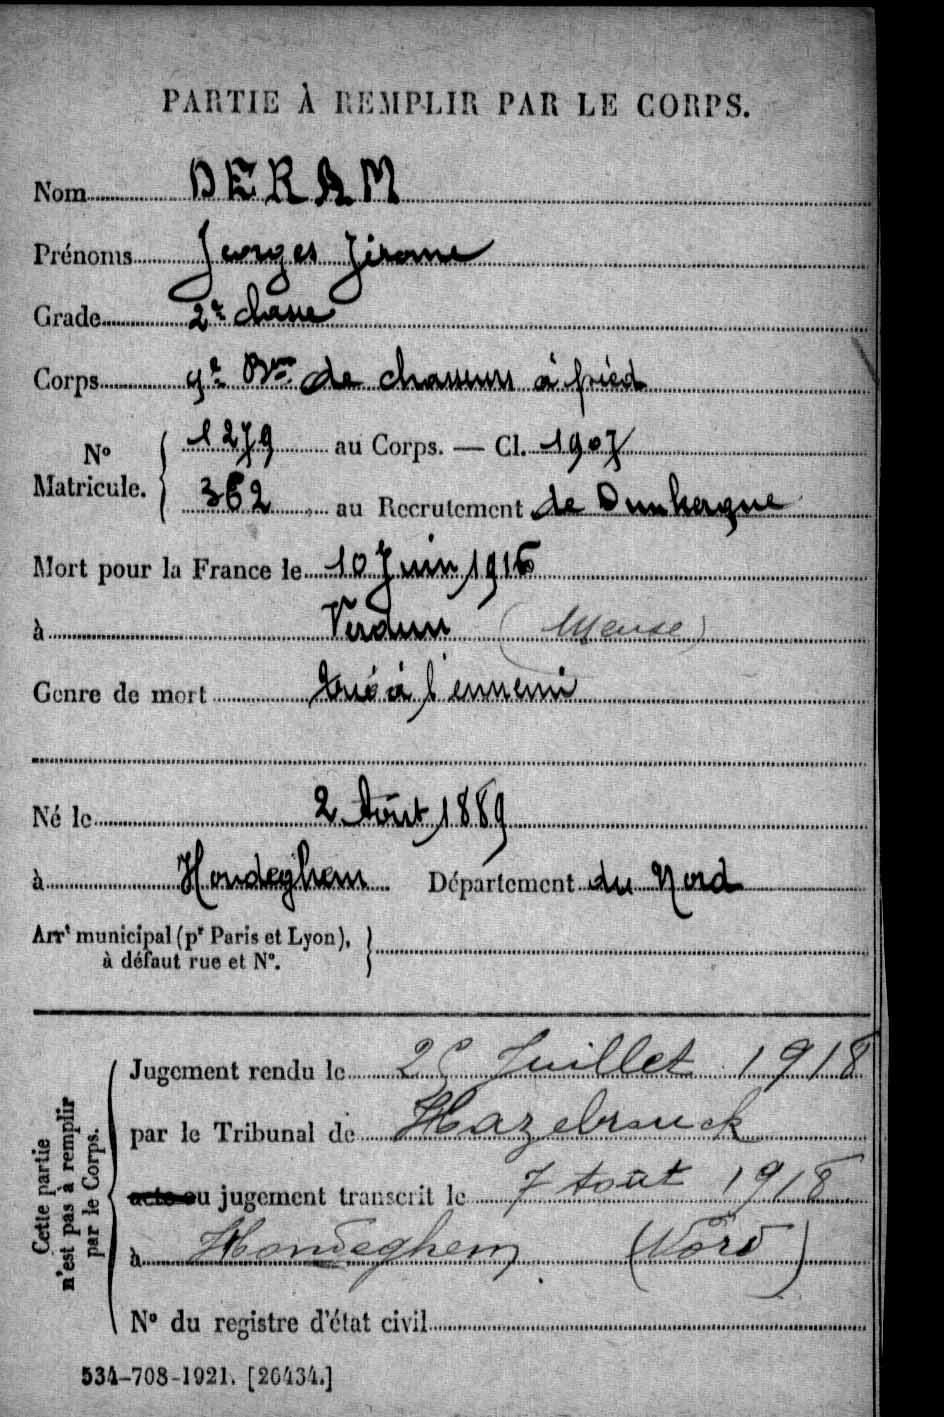 PARTIE À REMPLIR PAR LE CORPS.
Nom DERAM
Prénoms Georges Jérome
Grade 2e classe
Corps 9e Bon de chasseurs à pied
No Matricule. { 1279 au Corps. — Cl. 1907
362 au Recrutement de Dunkerque
Mort pour la France le 10 Juin 1916
à Verdun (Meuse)
Genre de mort tué à l'ennemi
Né le 2 Août 1889
à Hondeghem Département du Nord
Arrt municipal (pr Paris et Lyon), }
à défaut rue et No.
Cette partie n'est pas à remplir par le Corps.
Jugement rendu le Juillet 1918
par le Tribunal de Hazebrouck
acte ou jugement transcrit le 7 Août 1918
à Hondeghem (Nord)
No du registre d'état civil
534-708-1921. [26434.]